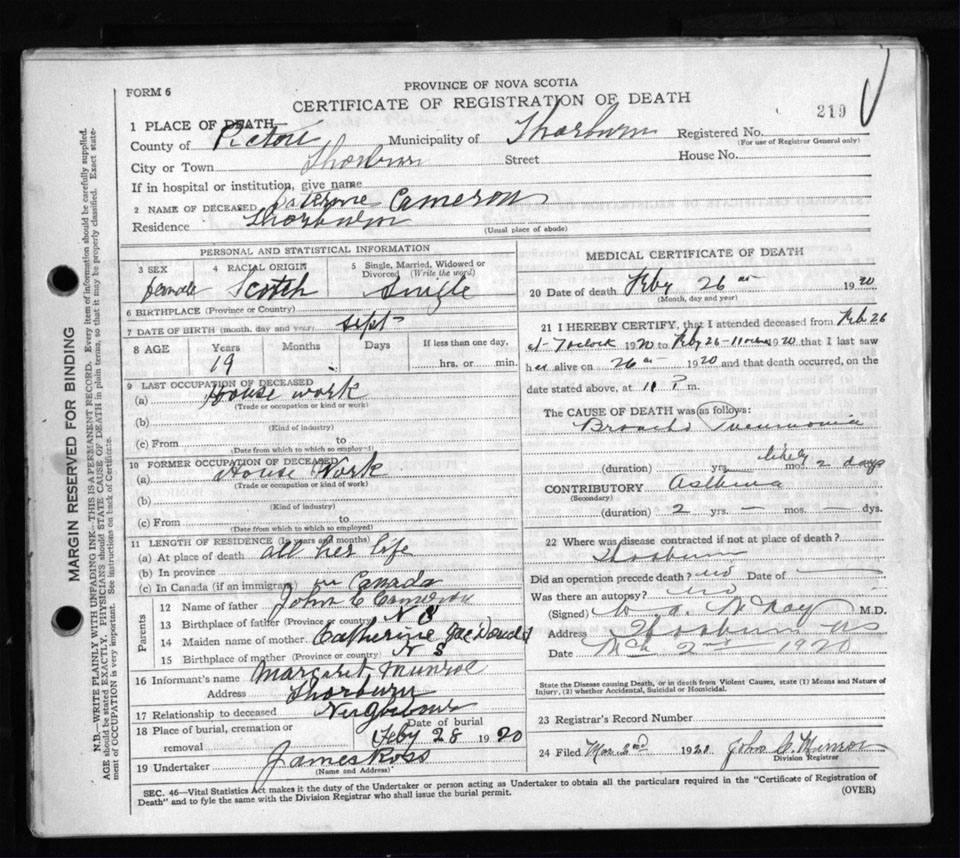 PROVINCE OF NOVA SCOTIA
FORM 6
CERTIFICATE OF REGISTRATION OF DEATH
219
1 PLACE OF DEATH
County of Pictou Municipality of Thorburn Registered No.
(For use of Registrar General only)
City or Town Thorburn Street House No.
If in hospital or institution, give name
2 NAME OF DECEASED Cameron
Residence Thorburn (Usual place of abode)
PERSONAL AND STATISTICAL INFORMATION
3 SEX 4 RACIAL ORIGIN 5 Single, Married, Widowed or Divorced (Write the word)
female Scotch Single
6 BIRTHPLACE (Province or Country)
7 DATE OF BIRTH (month, day and year) Sept
8 AGE Years Months Days If less than one day,
19 hrs. or min.
9 LAST OCCUPATION OF DECEASED
(a) House work
(Trade or occupation or kind or work)
(b)
(Kind of industry)
(c) From to
(Date from which to which so employed)
10 FORMER OCCUPATION OF DECEASED
(a) House Work
(Trade or occupation or kind of work)
(b)
(Kind of industry)
(c) From to
(Date from which to which so employed)
11 LENGTH OF RESIDENCE (In years and months)
(a) At place of death all her life
(b) In province
(c) In Canada (if an immigrant) in Canada
Parents
12 Name of father John C Cameron
13 Birthplace of father (Province or country) N S
14 Maiden name of mother Catherine MacDonald
15 Birthplace of mother (Province or country) N S
16 Informant's name Margaret Munroe
Address Thorburn
17 Relationship to deceased Neighbour
18 Place of burial, cremation or removal Date of burial
Feby 28 1920
19 Undertaker James Ross
(Name and Address)
MEDICAL CERTIFICATE OF DEATH
20 Date of death Feby 26 1920
(Month, day and year)
21 I HEREBY CERTIFY, that I attended deceased from Feb 26
at 7 oclock 1920 to Feby 26-11 1920 that I last saw
her alive on 26 1920 and that death occurred, on the
date stated above, at 11 P m.
The CAUSE OF DEATH was as follows:
Broncho Pneumonia
likely
(duration) yrs. mos. 2 days
CONTRIBUTORY Asthma
(Secondary)
(duration) 2 yrs. — mos. — dys.
22 Where was disease contracted if not at place of death?
Thorburn
Did an operation precede death? no Date of
Was there an autopsy? no
(Signed) M.D.
Address Thorburn NS
Date Mch 2nd 1920
State the Disease causing Death, or in death from Violent Causes, state (1) Means and Nature of Injury, (2) whether Accidental, Suicidal or Homicidal.
23 Registrar's Record Number
24 Filed Mar 2nd 1920 John C. Munroe
Division Registrar
SEC. 46—Vital Statistics Act makes it the duty of the Undertaker or person acting as Undertaker to obtain all the particulars required in the "Certificate of Registration of
Death" and to fyle the same with the Division Registrar who shall issue the burial permit.
(OVER)
MARGIN RESERVED FOR BINDING
N.B.—WRITE PLAINLY WITH UNFADING INK—THIS IS A PERMANENT RECORD. Every item of information should be carefully supplied.
AGE should be stated EXACTLY. PHYSICIANS should STATE CAUSE OF DEATH in plain terms, so that it may be properly classified. Exact statement of OCCUPATION is very important. See instructions on back of Certificate.